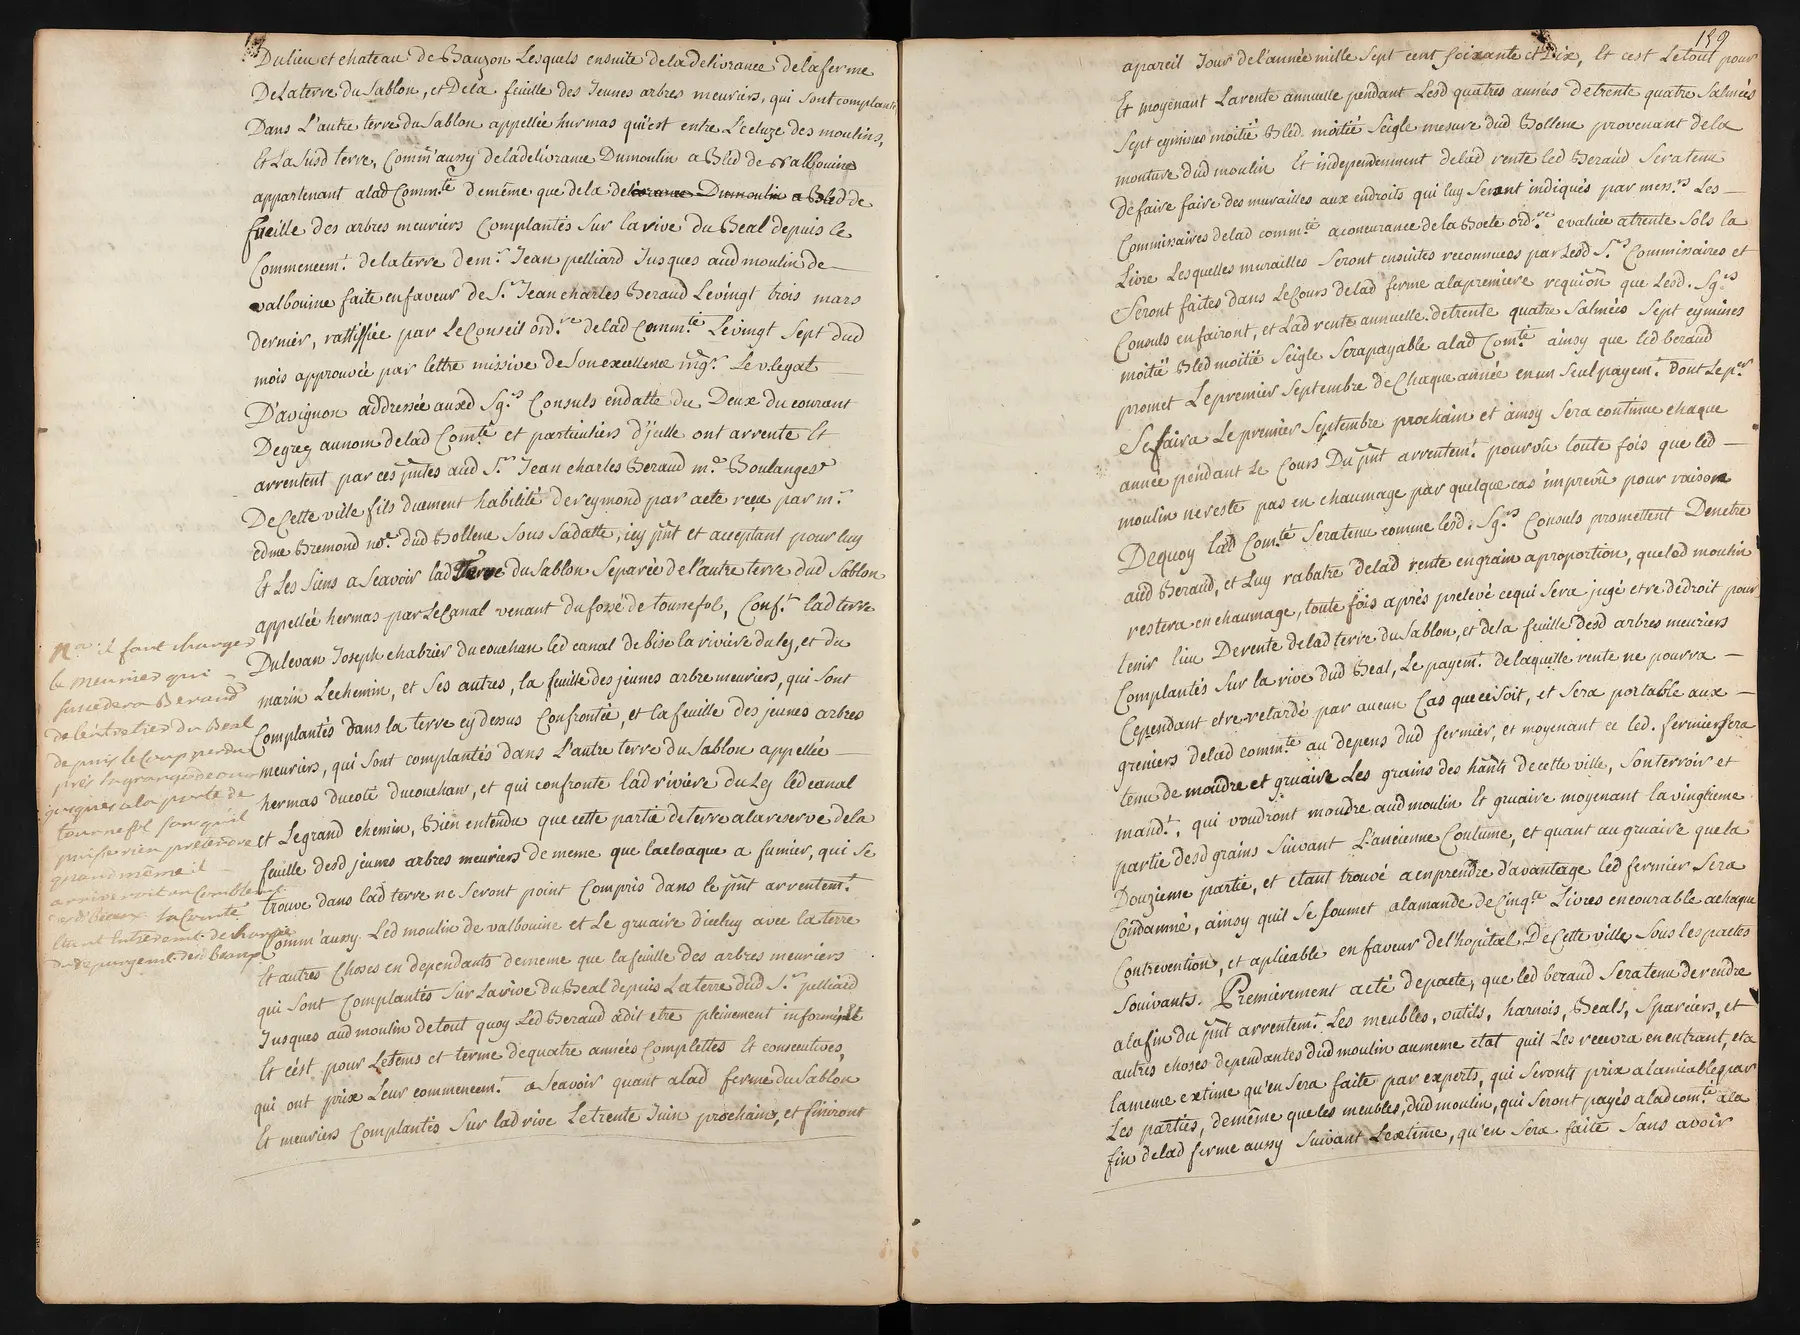 Du lieu et chateau de Bauzon Lesquels ensuite de la delivrance de la ferme
De La terre du Sablon, et De la feuille des Jeunes arbres meuriers, qui sont complantés
Dans L'autre terre du Sablon appellée hermas qu'est entre L'ecluze des moulins,
Et La susd terre, Comm'aussy de la delivrance Du moulin a Bled de valbouine
appartenant a lad Comm.té de même que de la delivrance Du moulin a Bled de
fueille des arbres meuriers Complantés Sur la rive du Beal depuis le
Commencem.t de la terre de m.r Jean pelliard Jusques aud moulin de
valbouine faite en faveur de S.r Jean charles Beraud Le vingt trois mars
dernier, rattiffiée par Le Conseil ord.re de lad Comm.té Le vingt Sept dud
mois approuvée par lettre missive de Son excellence mgr. Le v. legat
D'avignon addressée auxd Sg.rs Consuls en datte du Deux du courant
De grez au nom de lad Com.té et particuliers d'jcelle ont arrenté Et
arrentent par ces pñtes aud S.r Jean charles Beraud m.e Boulanger
De Cette ville fils duement habilité de reymond par acte reçu par m.r
edme Bremond no.re dud Bollene Sous Sa datte, icy pñt et acceptant pour luy
Et Les Siens a Scavoir lad Terre du Sablon Separée de l'autre terre dud Sablon
appellée hermas par Le Canal venant du fossé de tournefol, Conf.t lad terre
Du levan Joseph chabrier du couchan led canal de bise la riviere du lez, et du
marin Le chemin, et Ses autres, la feuille des jeunes arbre meuriers, qui sont
Complantés dans la terre cy dessus Confrontée, et la feuille des jeunes arbres
meuriers, qui sont complantés dans L'autre terre du Sablon appellée
hermas du coté du couchan, et qui confronte lad riviere du Lez led canal
et Le grand chemin, Bien entendu que cette partie de terre a la reserve de la
feuille desd jeunes arbres meuriers de meme que la cloaque a fumier, qui se
trouve dans lad terre ne Seront point Compris dans le pñt arrentem.t
Comm'aussy Led moulin de valbouine et Le gruaire d'icelluy avec la terre
Et autres Choses en dependants de meme que la feuille des arbres meuriers
qui sont Complantés Sur La rive du Beal depuis La terre dud S.r pelliard
Jusques aud moulin de tout quoy Led Beraud a dit etre pleinement informé
Et c'est pour Le tems et terme de quatre années Complettes Et consecutives,
qui ont prix Leur commencem.t a Scavoir quant a lad ferme du Sablon
Et meuriers Complantés Sur lad rive Le trente Juin prochain, et finiront
N.a il faut charger
le meunier qui
succedera a Beraud
de l'entretien du Beal
depuis le Coup perdu
près la grange de
jusques a la porte de
tournefol sans qu'il
puisse rien pretendre
quand même il
arriveroit un
la Comté
159
a pareil Jour de l'année mille Sept cent Soixante et Dix, Et c'est Le tout pour
Et moyenant La rente annuelle pendant Lesd quatres années de trente quatre Salmées
Sept eymines moitié Bled moitié Seigle mesure dud Bollene provenant de la
mouture dud moulin Et independenment de lad rente led Beraud Sera tenu
De faire faire des murailles aux endroits qui luy Seront indiqués par mess.rs Les
Commissaires de lad comm.té a concurance de la Boele ord.re evaluée a trente Sols la
Livre Lesquelles murailles Seront ensuites reconnues par Lesd S.rs Commissaires et
Seront faites dans Le Cours de lad ferme a la premiere requi͠on que Lesd. Sg.rs
Consuls en fairont, et Lad rente annuelle de trente quatre Salmées Sept eymines
moitié Bled moitié Seigle Sera payable a lad Com.té ainsy que led beraud
promet Le premier Septembre de Chaque année en un Seul payem.t Dont Le p.er
Se faira Le premier Septembre prochain et ainsy Sera continué chaque
année pendant Le Cours Du pñt arrentem.t pourvû toute fois que led
moulin ne reste pas en chaumage par quelque cas imprevû pour raison
De quoy lad Com.té Sera tenu comme lesd. Sg.rs Consuls promettent D'en etre
aud Beraud, et Luy rabatre de lad rente en grain a proportion, que led moulin
restera en chaumage, toute fois aprés prelevé ce qui Sera jugé etre de droit pour
tenir lieu De rente de lad terre du Sablon, et de la feuille desd arbres meuriers
Complantés Sur la rive dud Beal, Le payem.t de laquelle rente ne pourra
Cependant etre retardé par aucun Cas que ce soit, et Sera portable aux
greniers de lad comm.té au depens dud fermier, et moyenant ce led. fermier sera
tenu de moudre et gruaire Les grains des hãnts de cette ville, Son terroir et
mand.t, qui voudront moudre aud moulin Et gruaire moyenant la vingtieme
partie desd grains Suivant L'ancienne Coutume, et quant au gruaire que la
Douzieme partie, et etant trouvé a en prendre d'avantage led fermier Sera
Condamné, ainsy quil Se soumet a lamande de Cinq.te Livres encourable a chaque
Contrevention, et apliçable en faveur de l'hopital De Cette ville, Sous les pactes
Souivants. Premierement acté de pacte, que led beraud Sera tenu de rendre
a la fin du pñt arrentem.t Les meubles, outils, harnois, Beals, Sparciers, et
autres choses dependantes dud moulin au meme etat quil Les recevra en entrant, et a
la meme extime qu'en sera faite par experts, qui seront prix a lamiable par
Les parties, de même que les meubles, dud moulin, qui seront payés a lad com.té a la
fin de lad ferme aussy Suivant L'extime, qu'en Sera faite Sans avoir